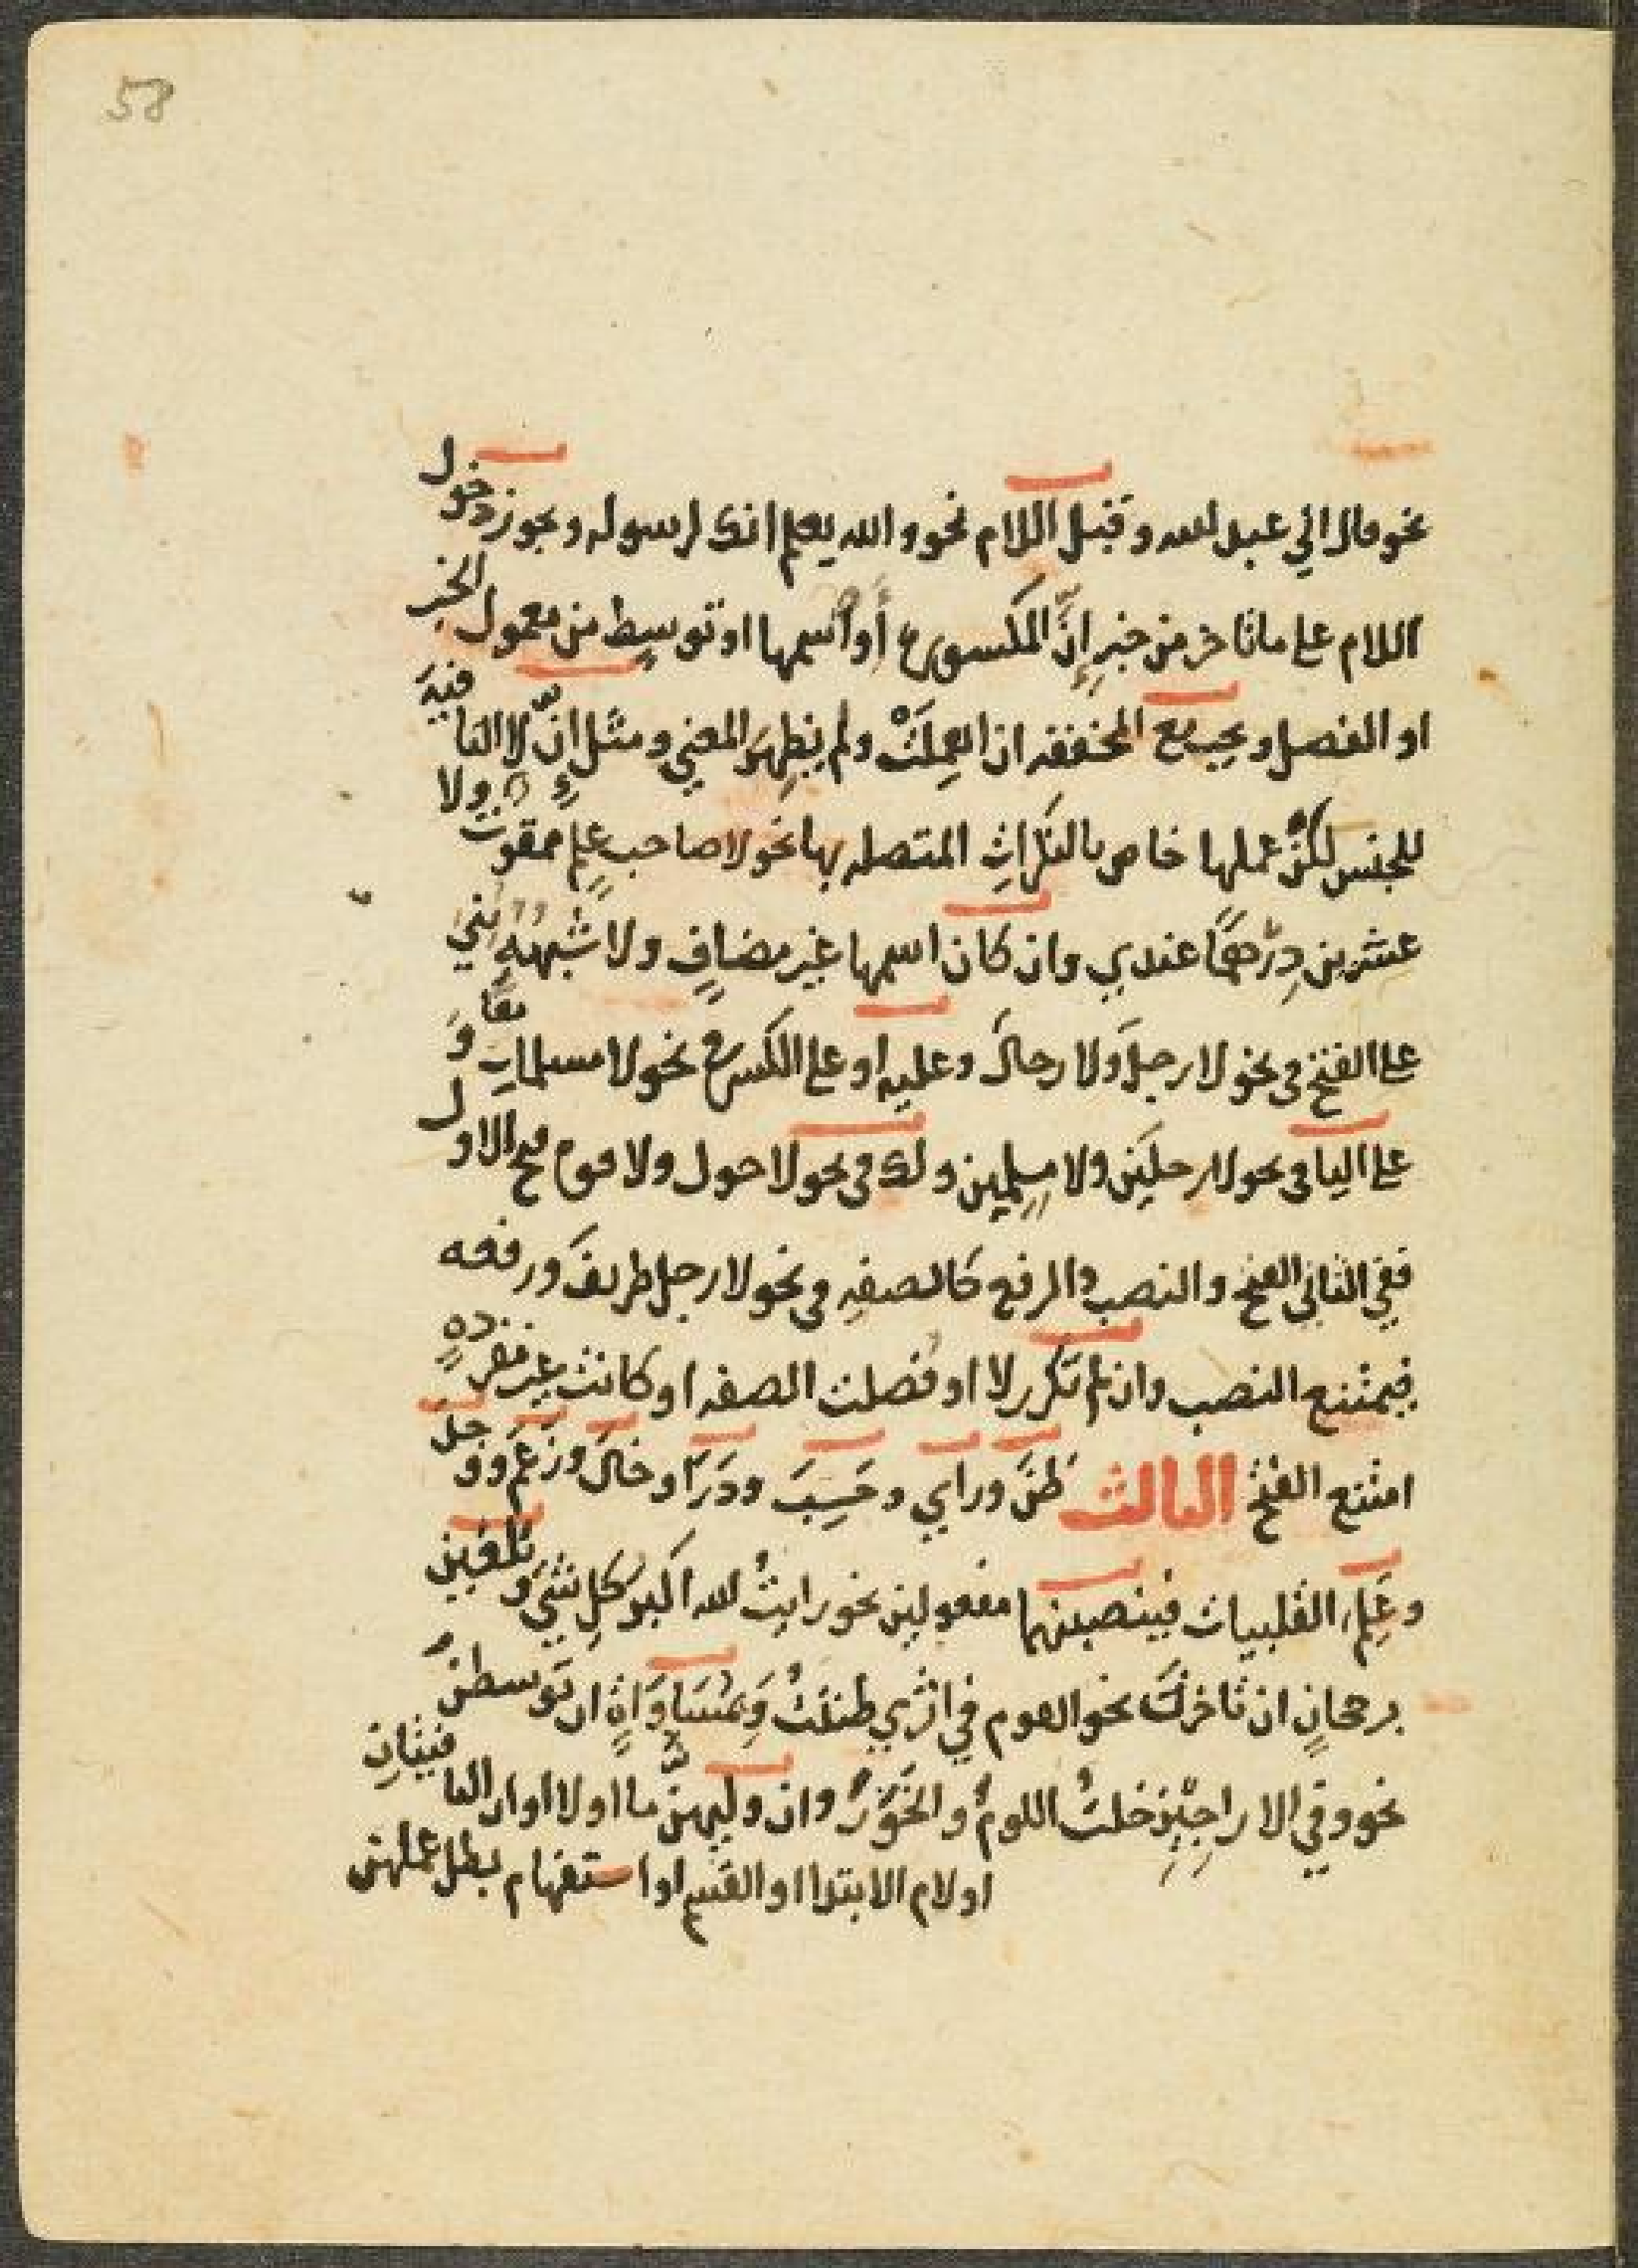 58
نحو قال اني عبد الله وقبل اللام نحو والله يعلم انك لرسوله ويجوز دخول
اللام على ما تاخر من خبر إنَّ المكسورة أو اسمها او توسط من معمول الخبر
او الفصل ويجب مع المخففه ان اهمِلَتْ ولم يظهر المعنى ومثل انّ لا النافيه
للجنس لكنّ عملها خاص بالنكراتِ المتصله بها نحو لا صاحب علمٍ ممقوت ولا
عشرين دِرْهمًا عندي وان كان اسمها غير مضافٍ ولا شبهه بُني
على الفتح في نحو لا رجلَ ولا رجالَ وعليه او على الكسر في نحو لا مسلماتِ و
على اليا في نحو لا رجلَينِ ولا مسلِمِين ولك في نحو لا حول ولا قوه فتح الاول
ففي الثاني الفتح والنصب والرفع كالصفهِ في نحو لا رجل ظريف ورفعه
فيمتنع النصب وان لم تكرر لا او فصلت الصفه او كانت غير مفردهٍ
امتنع الفتح الثالث ظنَّ وراي وحَسِبَ ودَرَا وخالَ وزعم ووجدَ
وعَلِمَ القلبيات فينصبنهما مفعولين نحو رايتُ الله اكبر كلِ شيٍ ويلغين
برجحانٍ ان تاخرنَ نحو القوم في اثري ظننتُ وَبمُسَاوَاةٍ ان توسطنَ
نحو وفي الاراجيزِ خلتُ اللومُ والخَوَرُ وان وليهنّ ما او لا او ان النافيتانِ
او لام الابتدا او القسم او استفهام بطل عملهن